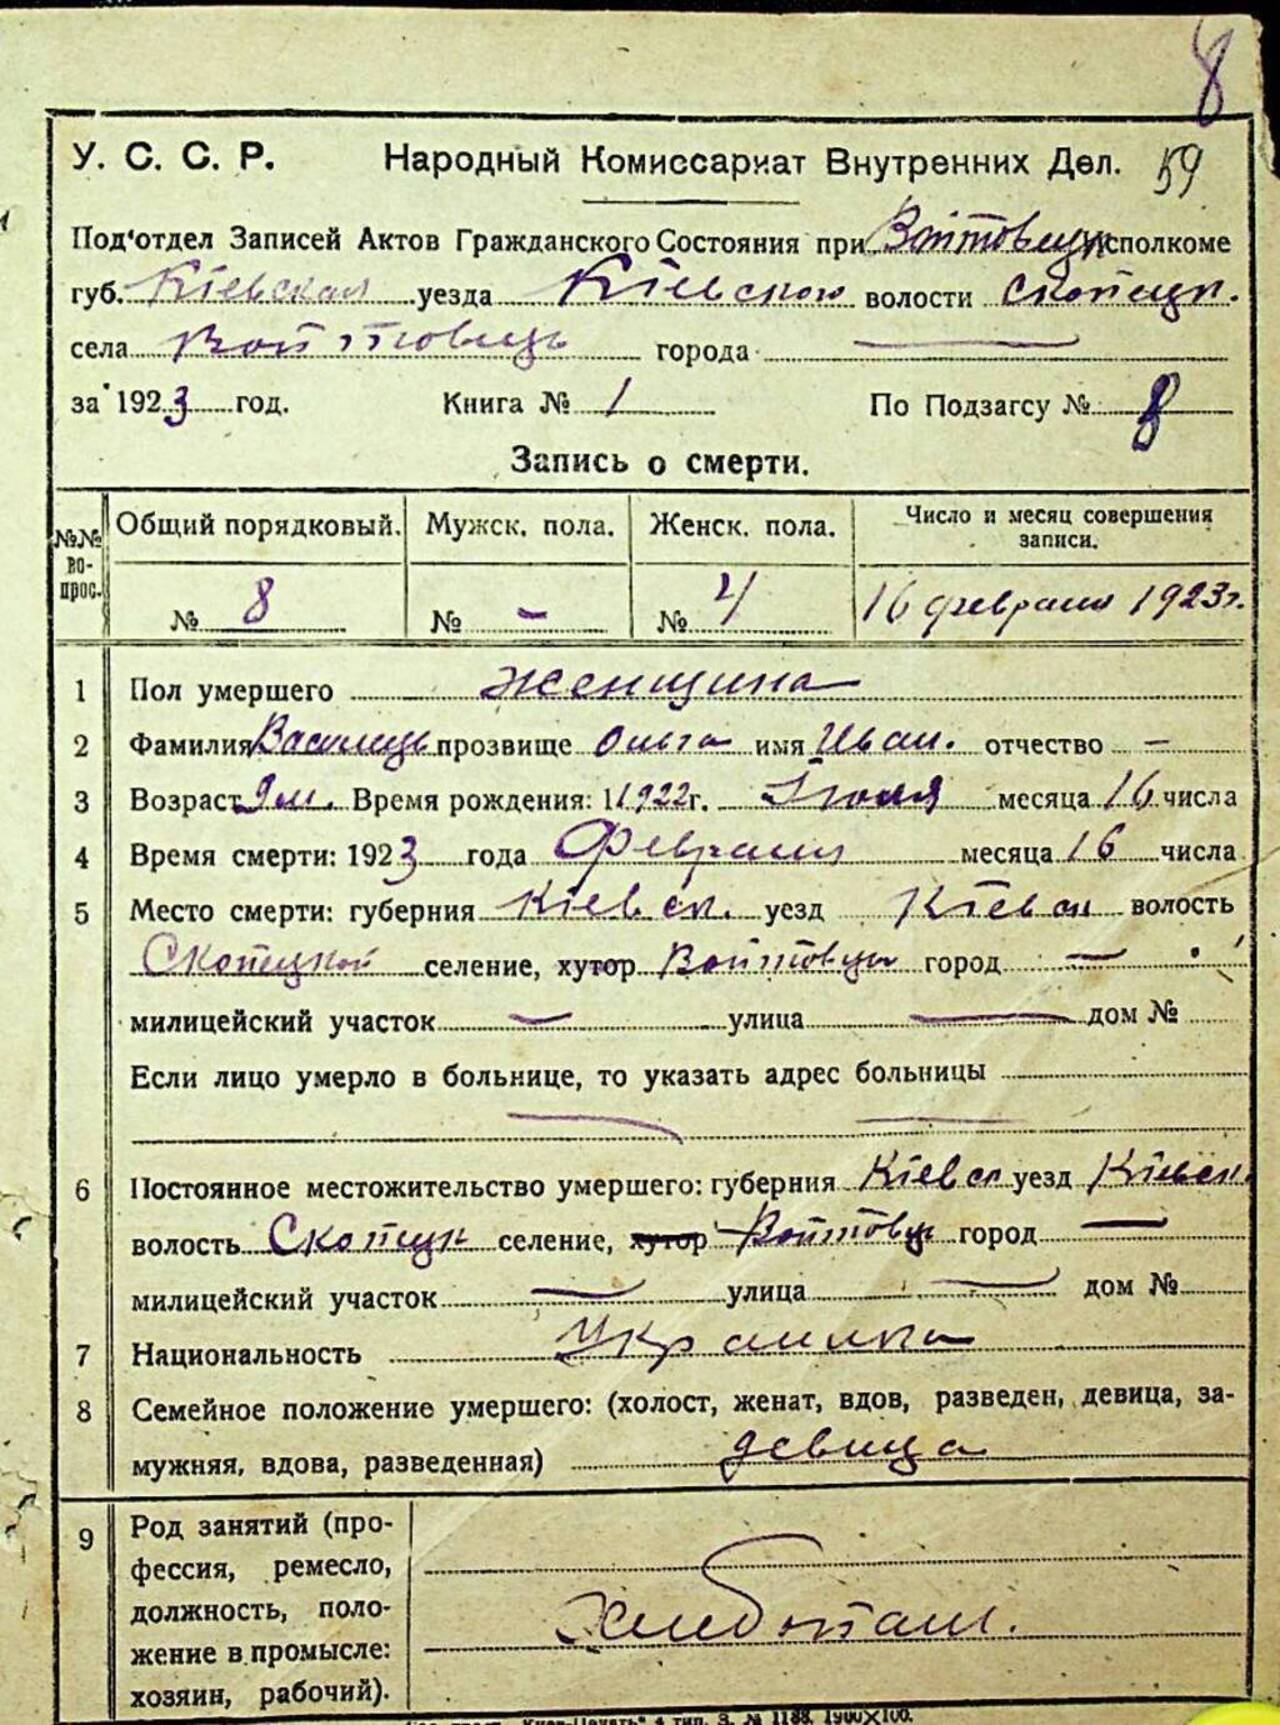 8
У. С. С. Р. Народный Комиссариат Внутренних Дел. 59
Под'отдел Записей Актов Гражданского Состояния при Войтовецк исполкоме
губ. Кіевская уезда Кіевскою волости Скопецк.
села Войтовець города —
за 1923 год. Книга № 1 По Подзагсу № 8
Запись о смерти.
№№ вопрос. Общий порядковый. Мужск. пола. Женск. пола. Число и месяц совершения записи.
№ 8 № — № 4 16 февраля 1923 г.
1 Пол умершего женщина
2 Фамилия прозвище Ольга имя Иван. отчество —
3 Возраст 9 м. Время рождения: 1 1922 г. Іюля месяца 16 числа
4 Время смерти: 1923 года Февраля месяца 16 числа
5 Место смерти: губерния Кіевск. уезд Кіевск волость
Скопецкой селение, хутор Войтовцы город —
милицейский участок — улица — дом №
Если лицо умерло в больнице, то указать адрес больницы
6 Постоянное местожительство умершего: губерния Кіевск уезд Кіевск.
волость Скопецк селение, хутор Войтовц город —
милицейский участок — улица — дом №
7 Национальность Украинка
8 Семейное положение умершего: (холост, женат, вдов, разведен, девица, за-
мужняя, вдова, разведенная) девица
9 Род занятий (про-
фессия, ремесло,
должность, поло-
жение в промысле:
хозяин, рабочий).
Хлебопаш.
4 тип. З. № 1188. 1900×100.